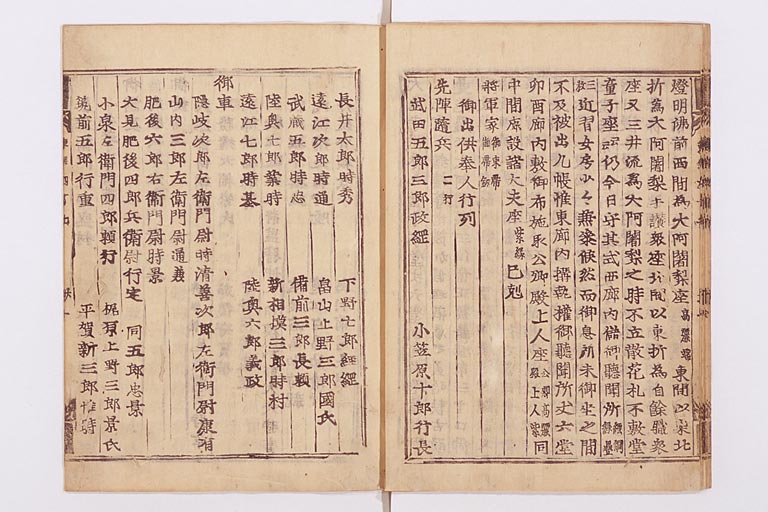 燈明佛前西間為大阿闍梨座高麗端東間以東北
折為大阿闍梨手讃衆座北間以東折為自餘職衆
座又三井流為大阿闍梨之時不立散花札不敷堂
童子座云云仍今日守其式西廊内儲御聽聞所
三近習女房少々無糸候然而御息所未御坐之間
不及被出几帳惟東廊内摺執權御聽聞所丈六堂
卯酉廊内敷御布施取公卿殿上人座同
中間席設諸大夫座紫縁巳剋
将軍家御束帶御帶釼
御出供奉人行列
先陣隨兵二行
武田五郎三郎政經 小笠原十郎行長
長井太郎時秀 下野七郎經經
遠江次郎時通 畠山上野三郎國氏
武藏五郎時忠 備前三郎長頼
陸奥七郎業時 新相模三郎時村
遠江七郎時基 陸奥六郎義政
御車
隠岐次郎左衛門尉時清善次郎左衛門尉康有
山内三郎左衛門尉通義
肥後六郎右衛門尉時景
大見肥後四郎兵衛尉行定 同五郎忠景
小泉左衛門四郎頼行 梶原上野三郎景氏
筑前五郎行重 平賀新三郎惟時